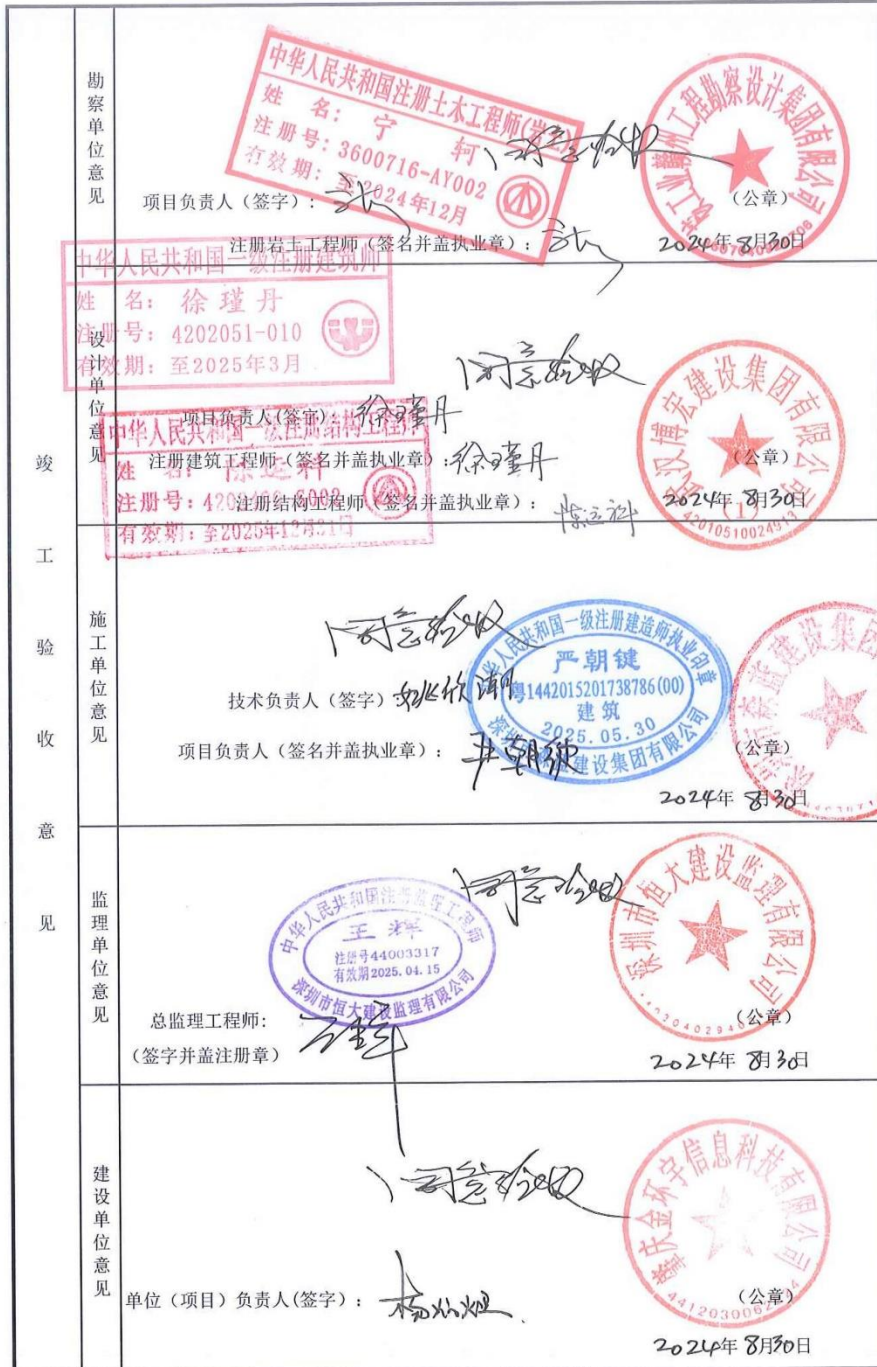 竣工验收意见
勘察单位意见
中华人民共和国注册土木工程师(岩土)
姓 名: 宁 轲
注册号: 3600716-AY002
有效期: 至2024年12月
同意验收
赣州工程勘察设计集团有限公司
项目负责人（签字）:
（公章）
注册岩土工程师（签名并盖执业章）:
2024年 8月30日
设计单位意见
中华人民共和国一级注册建筑师
姓 名: 徐瑾丹
注册号: 4202051-010
有效期: 至2025年3月
同意验收
武汉博宏建设集团有限公司
(1)
42010510024913
项目负责人(签字): 徐瑾丹
中华人民共和国一级注册结构工程师
姓 名: 陈运科
有效期: 至2025年12月31日
注册建筑工程师（签名并盖执业章）: 徐瑾丹
（公章）
注册结构工程师（签名并盖执业章）: 陈运科
2024年 8月30日
施工单位意见
同意验收
中华人民共和国一级注册建造师执业印章
严朝键
粤1442015201738786(00)
建筑
2025.05.30
建设集团有限公司
技术负责人（签字）
项目负责人（签名并盖执业章）: 严朝键
（公章）
2024年 8月30日
监理单位意见
同意验收
中华人民共和国注册监理工程师
王辉
注册号44003317
有效期2025.04.15
深圳市恒大建设监理有限公司
深圳市恒大建设监理有限公司
总监理工程师:
（签字并盖注册章）
（公章）
2024年 8月30日
建设单位意见
同意验收
肇庆金环宇信息科技有限公司
单位（项目）负责人(签字):
（公章）
2024年 8月30日